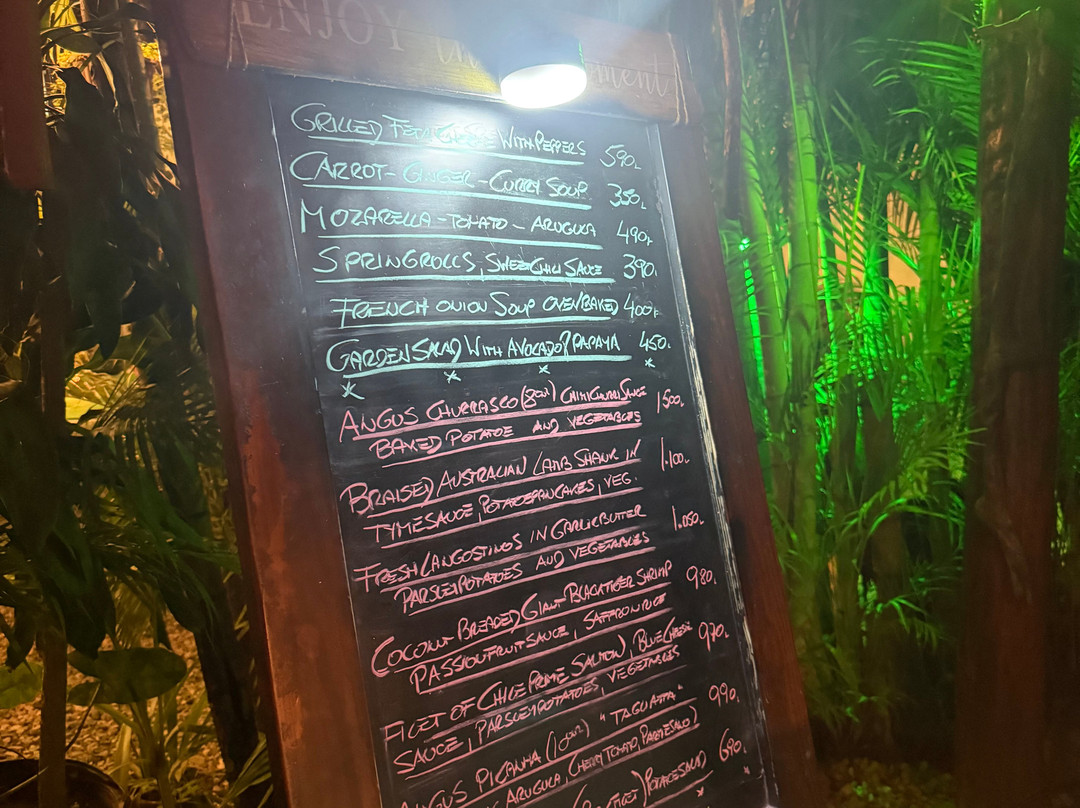 ENJOY the moment
GRILLED FETACHEESE WITH PEPPERS 590.
CARROT-GINGER-CURRY SOUP 350.
MOZARELLA-TOMATO-ARUGULA 490.
SPRINGROLLS, SWEETCHILI SAUCE 390.
FRENCH ONION SOUP OVENBAKED 400.
GARDEN SALAD WITH AVOCADO & PAPAYA 450.
ANGUS CHURRASCO (8oz) CHIMICHURRI SAUCE 1500.
BAKED POTATOE AND VEGETABLES
BRAISED AUSTRALIAN LAMB SHANK IN 1.100.
TYMESAUCE, POTATOEPANCAKES, VEG.
FRESH LANGOSTINOS IN GARLICBUTTER 1.050.
PARSLEYPOTATOES AND VEGETABLES
COCONUT BREADED GIANT BLACKTIGER SHRIMP 980.
PASSIONFRUIT SAUCE, SAFFRONRICE
FILET OF CHILE PRIME SALMON, BLUECHEESE 970.
SAUCE, PARSLEYPOTATOES, VEGETABLES
ANGUS PICANHA (10oz) "TAGLIATA" 990.
ARUGULA, CHERRY TOMATO, PARMESAN)
FILET) POTATOE SALAD 690.